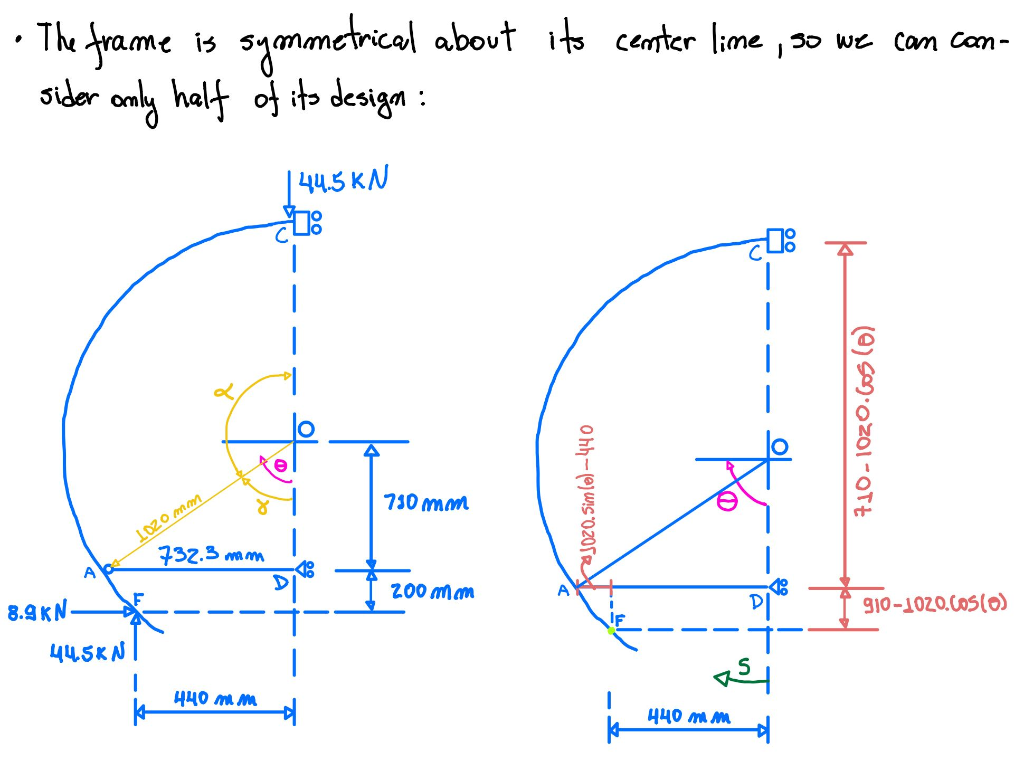 • The frame is symmetrical about its center line, so we can con-
sider only half of its design:
44.5 KN
C
α
O
θ
γ
1020 mm
710 mm
732.3 mm
A
D
200 mm
F
8.9 KN
44.5 KN
440 mm
C
710-1020.cos(θ)
O
θ
1020.sin(θ)-440
A
D
910-1020.cos(θ)
F
S
440 mm